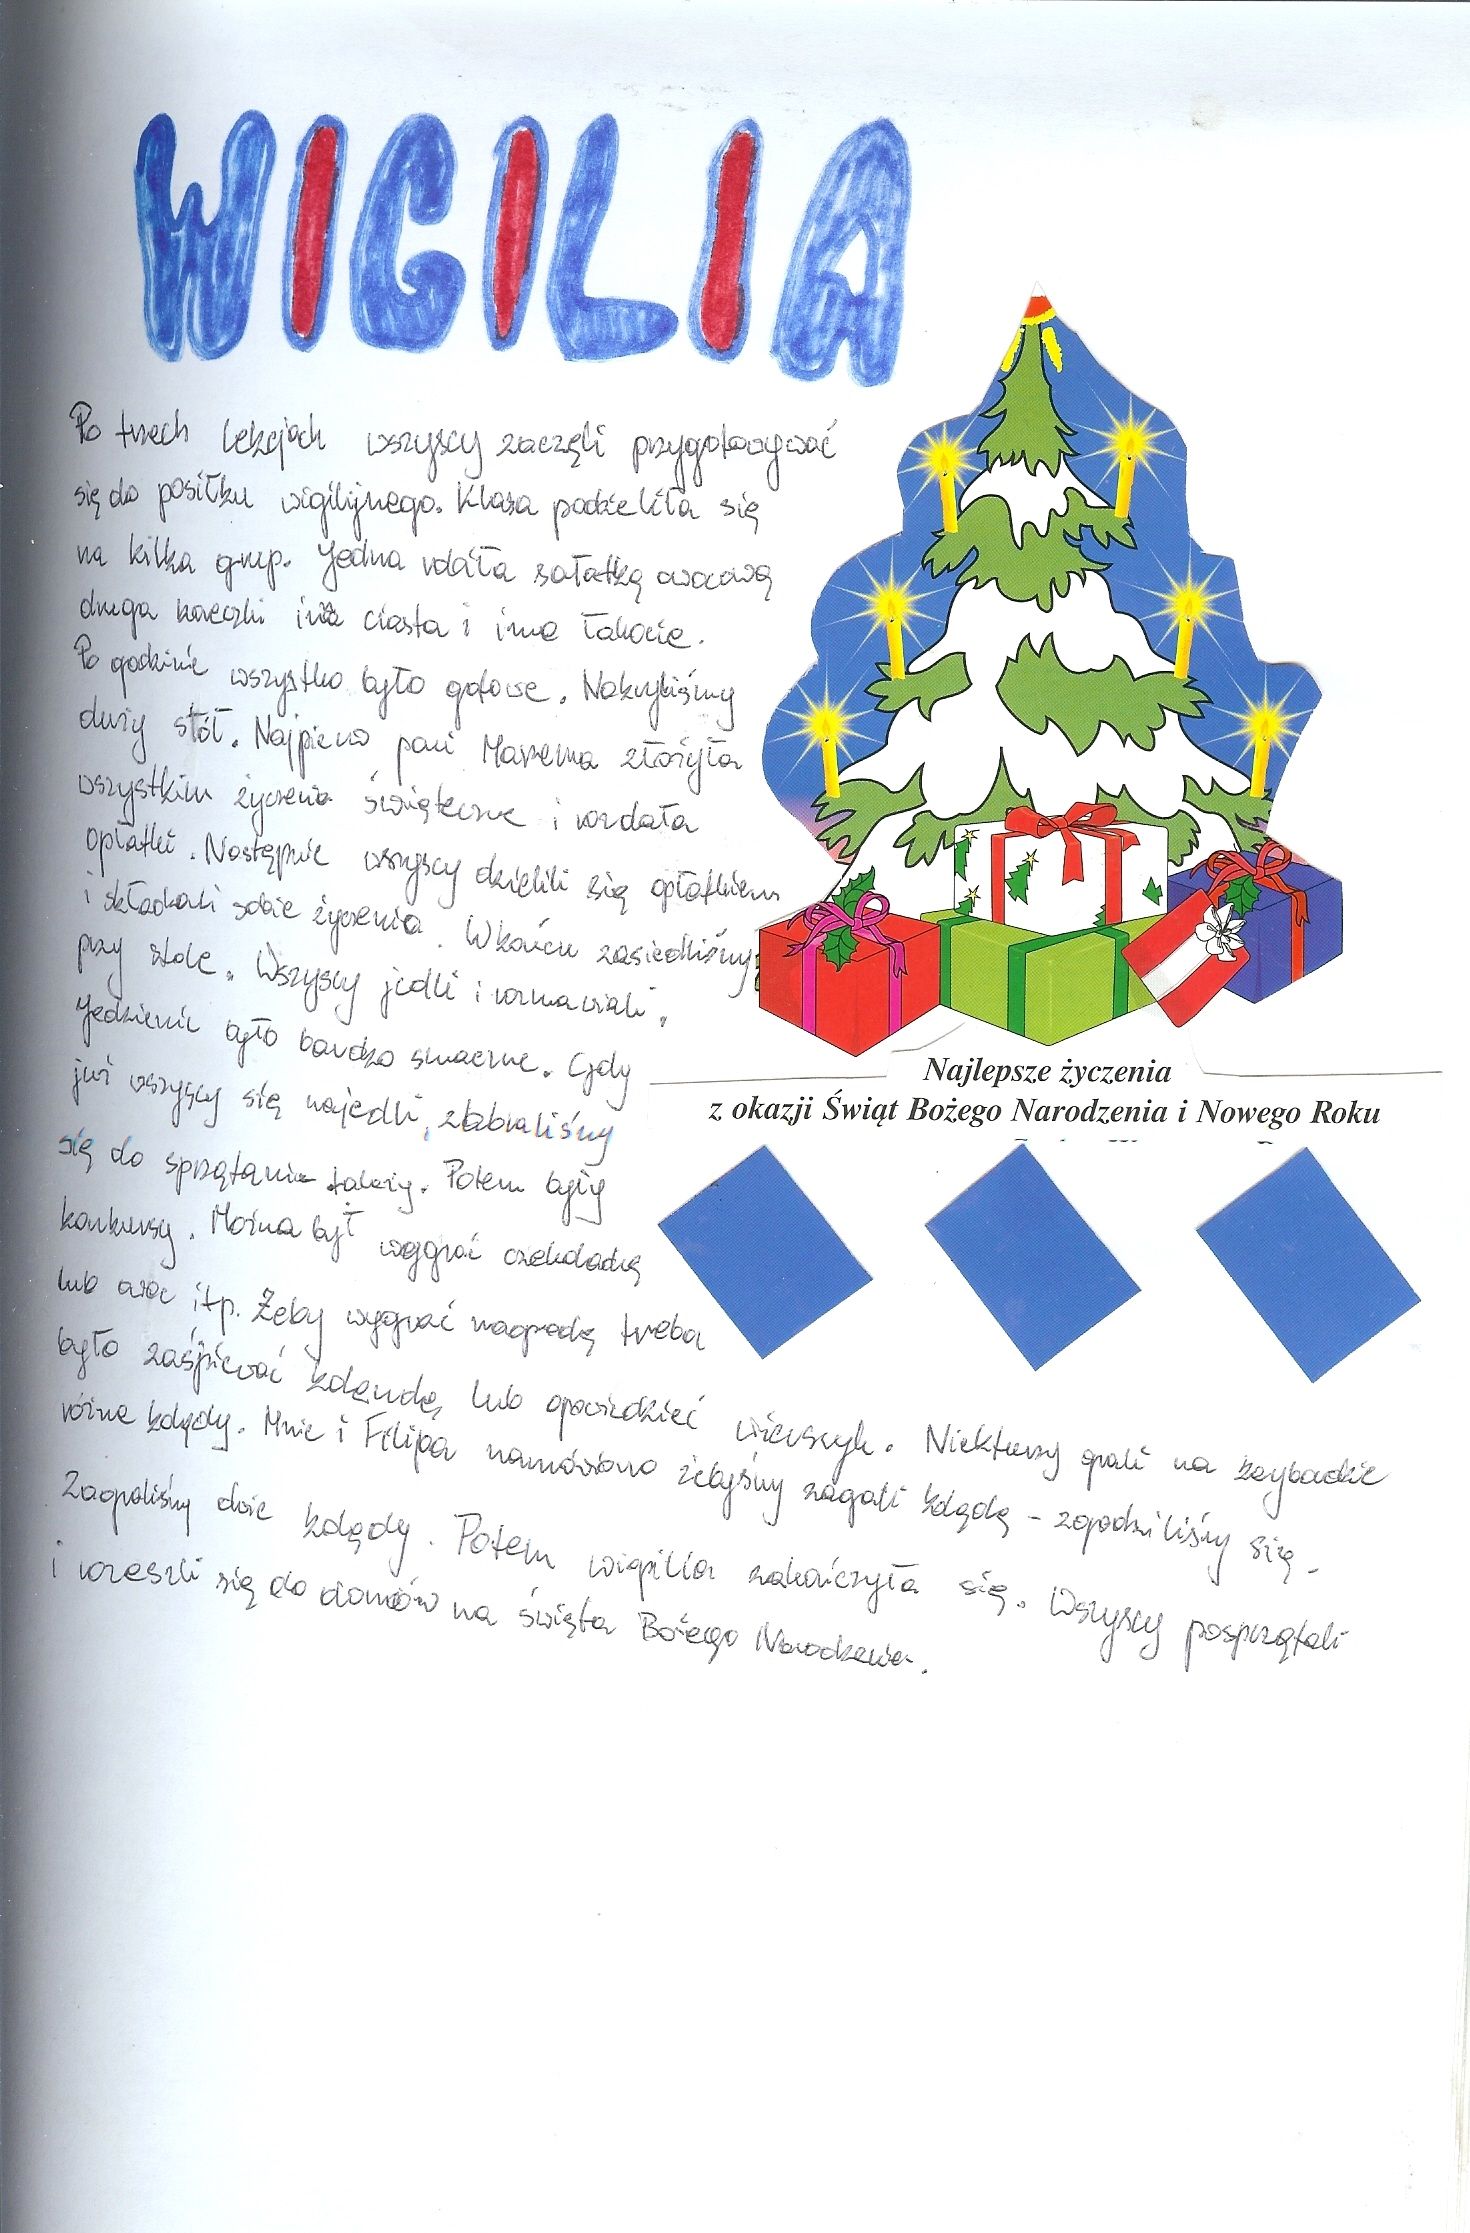 WIGILIA
Po trzech lekcjach wszyscy zaczęli przygotowywać
się do posiłku wigilijnego. Klasa podzieliła się
na kilka grup. Jedna robiła sałatką owocową
druga koreczki inna ciasta i inne łakocie.
Po godzinie wszystko było gotowe. Nakryliśmy
duży stół. Najpierw pani Marzena złożyła
wszystkim życzenia świąteczne i rozdała
opłatki. Następnie wszyscy dzielili się opłatkiem
i składali sobie życzenia. Wkońcu zasiedliśmy
przy stole. Wszyscy jedli i rozmawiali.
Jedzienie było bardzo smaczne. Gdy
już wszyscy się najedli, zabraliśmy
się do sprzątania talerzy. Potem były
konkursy. Można był wygrać czekoladkę
lub owoc itp. Żeby wygrać nagrodę trzeba
było zaśpiewać kolęndę lub opowiedzieć wierszyk. Niektórzy grali na keybordzie
różne kolędy. Mnie i Filipa namówiono żebyśmy zagali kolędę - zgodziliśmy się.
Zagraliśmy dwie kolędy. Potem wigilia zakończyła się. Wszyscy posprzątali
i rozeszli się do domów na święta Bożego Narodzenia.
Najlepsze życzenia
z okazji Świąt Bożego Narodzenia i Nowego Roku